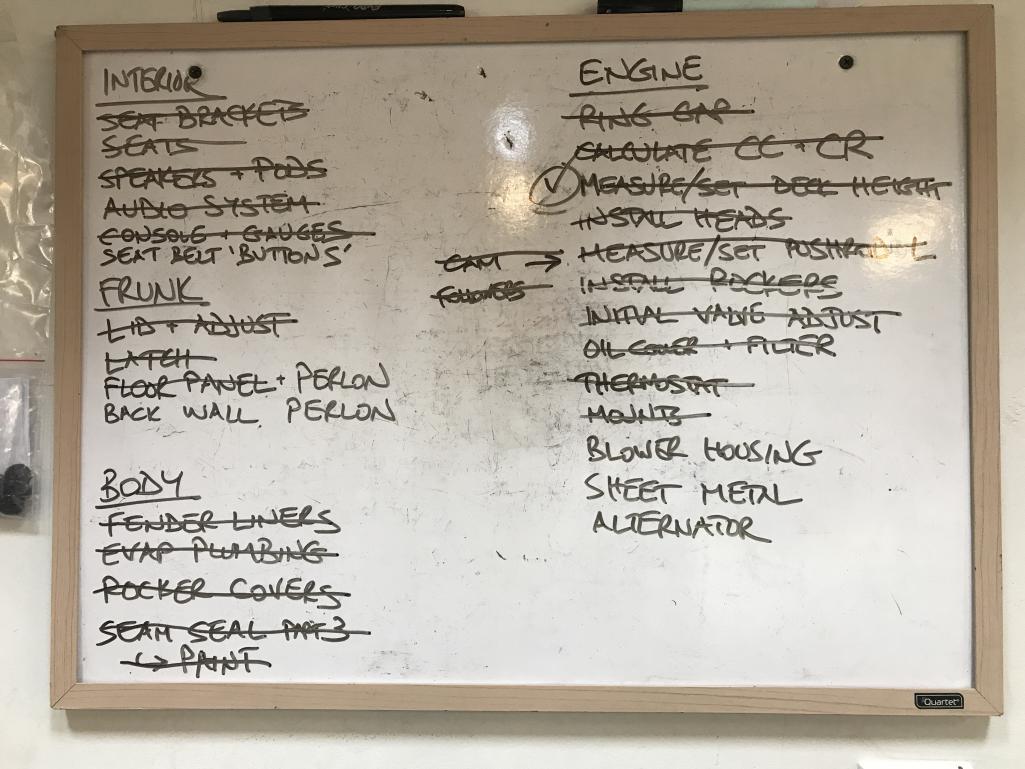 INTERIOR
SEAT BRACKETS
SEATS
SPEAKERS + PODS
AUDIO SYSTEM
CONSOLE + GAUGES
SEAT BELT 'BUTTONS'
FRUNK
LID + ADJUST
LATCH
FLOOR PANEL + PERLON
BACK WALL PERLON
BODY
FENDER LINERS
EVAP PLUMBING
ROCKER COVERS
SEAM SEAL PART 3
↳ PAINT
ENGINE
RING GAP
CALCULATE CC + CR
✓ MEASURE/SET DECK HEIGHT
INSTALL HEADS
CAM → MEASURE/SET PUSHROD L
FOLLOWERS INSTALL ROCKERS
INITIAL VALVE ADJUST
OIL COOLER + FILTER
THERMOSTAT
MOUNTS
BLOWER HOUSING
SHEET METAL
ALTERNATOR
Quartet